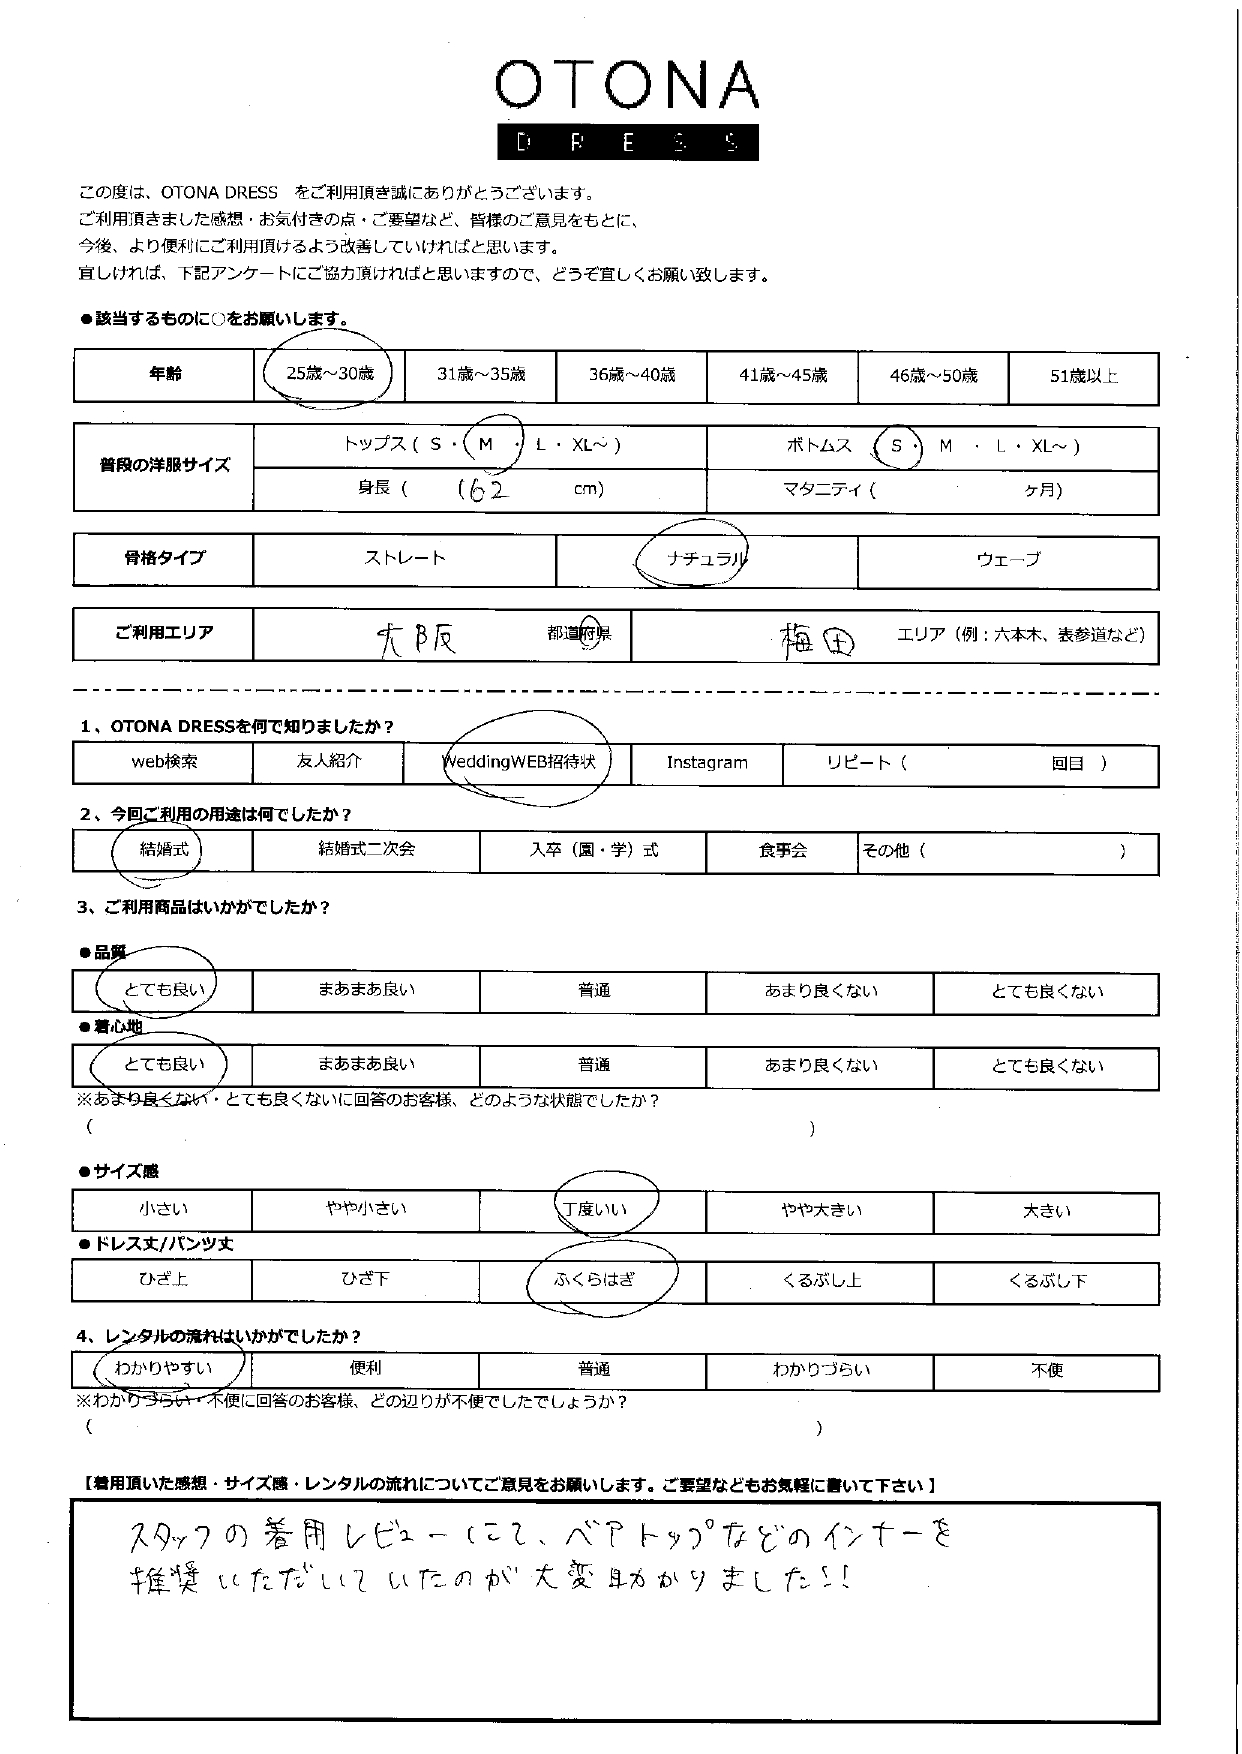 OTONA
DRESS
この度は、OTONA DRESS　をご利用頂き誠にありがとうございます。
ご利用頂きました感想・お気付きの点・ご要望など、皆様のご意見をもとに、
今後、より便利にご利用頂けるよう改善していければと思います。
宜しければ、下記アンケートにご協力頂ければと思いますので、どうぞ宜しくお願い致します。
●該当するものに○をお願いします。
年齢 25歳～30歳 31歳～35歳 36歳～40歳 41歳～45歳 46歳～50歳 51歳以上
普段の洋服サイズ トップス ( S ・ M ・ L ・ XL～ ) ボトムス ( S ・ M ・ L ・ XL～ )
身長 ( 162 cm) マタニティ ( ヶ月)
骨格タイプ ストレート ナチュラル ウェーブ
ご利用エリア 大阪 都道府県 梅田 エリア（例：六本木、表参道など）
1、OTONA DRESSを何で知りましたか？
web検索 友人紹介 WeddingWEB招待状 Instagram リピート（ 回目 ）
2、今回ご利用の用途は何でしたか？
結婚式 結婚式二次会 入卒（園・学）式 食事会 その他（ ）
3、ご利用商品はいかがでしたか？
●品質
とても良い まあまあ良い 普通 あまり良くない とても良くない
●着心地
とても良い まあまあ良い 普通 あまり良くない とても良くない
※あまり良くない・とても良くないに回答のお客様、どのような状態でしたか？
（ ）
●サイズ感
小さい やや小さい 丁度いい やや大きい 大きい
●ドレス丈/パンツ丈
ひざ上 ひざ下 ふくらはぎ くるぶし上 くるぶし下
4、レンタルの流れはいかがでしたか？
わかりやすい 便利 普通 わかりづらい 不便
※わかりづらい・不便に回答のお客様、どの辺りが不便でしたでしょうか？
（ ）
【着用頂いた感想・サイズ感・レンタルの流れについてご意見をお願いします。ご要望などもお気軽に書いて下さい】
スタッフの着用レビューにて、ベアトップなどのインナーを
推奨いただいていたのが大変助かりました!!